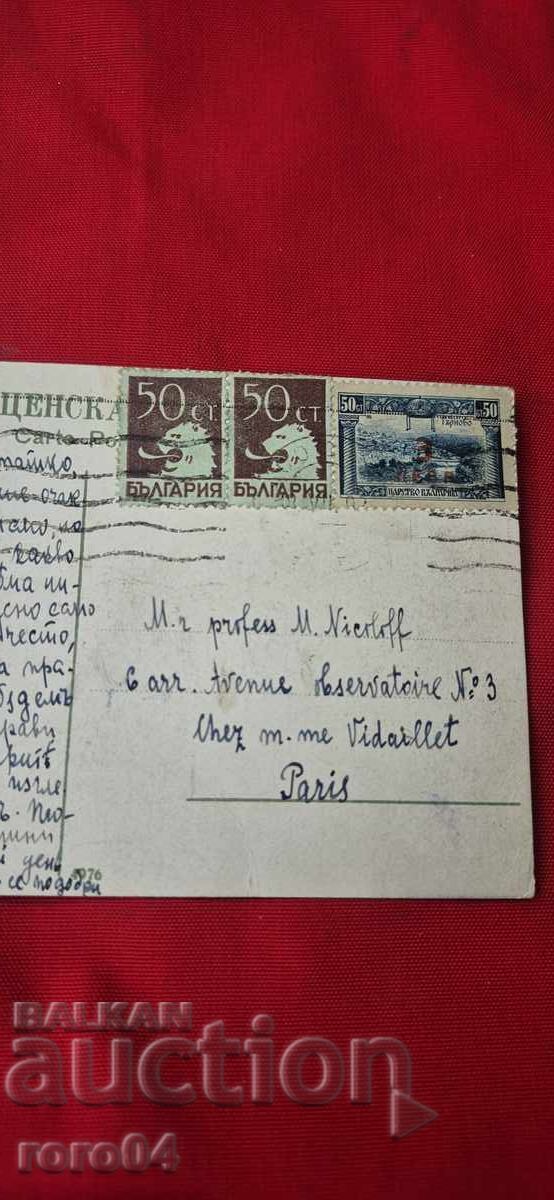 ЦЕНСКА
Carte Po
50 СТ
БЪЛГАРИЯ
50 СТ
БЪЛГАРИЯ
50 СТ 50
ТЪРНОВО
ЦАРСТВО БЪЛГАРИЯ
очак
какво
ма пи-
сно само
често,
а пра-
рави
изгле
ъ. Пео-
день
се подобри
M.r profess M. Nicoloff
6 arr. Avenue observatoire No 3
Chez m.me Vidaillet
Paris
BALKAN
auction
roro04